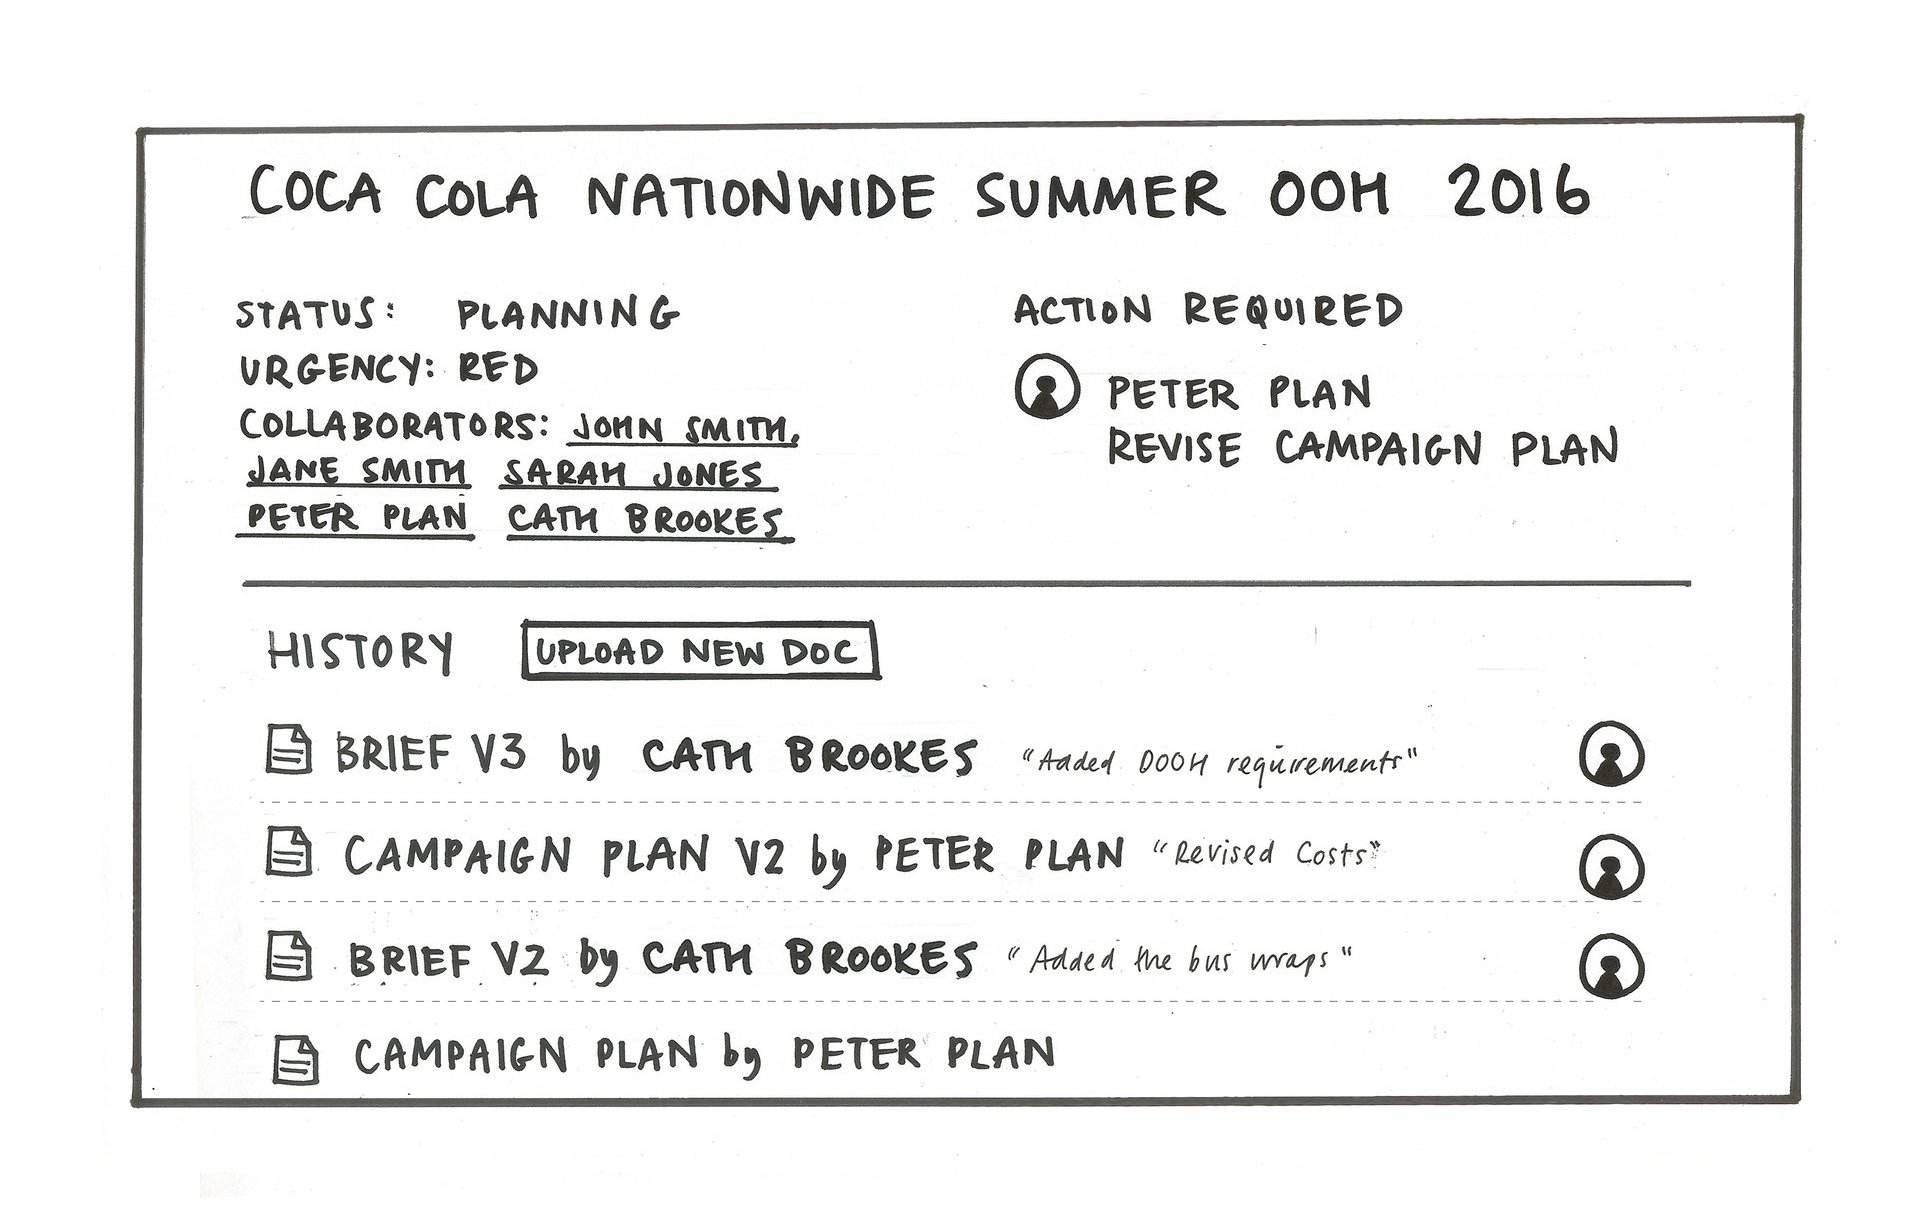 COCA COLA NATIONWIDE SUMMER OOH 2016
STATUS: PLANNING
URGENCY: RED
COLLABORATORS: JOHN SMITH,
JANE SMITH SARAH JONES
PETER PLAN CATH BROOKES
ACTION REQUIRED
PETER PLAN
REVISE CAMPAIGN PLAN
HISTORY UPLOAD NEW DOC
BRIEF V3 by CATH BROOKES "Added DOOH requirements"
CAMPAIGN PLAN V2 by PETER PLAN "Revised Costs"
BRIEF V2 by CATH BROOKES "Added the bus wraps"
CAMPAIGN PLAN by PETER PLAN